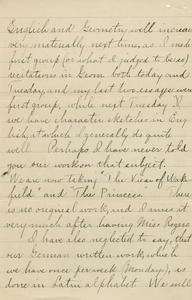 English and Geometry will increase
very materially next time, as I made
first group (or what I judged to be so)
recitations in Geom both today and
Tuesday, and my last two essays were
first group, while next Tuesday I
we have character sketches in Eng-
lish, at which I generally do quite
well. Perhaps I have never told
you our work on that subject.
We are now taking "The Vicar of Wake-
field" and "The Princess". There
is no original work, and I miss it
very much after having Miss Rogers
I have also neglected to say, that
our German written work, which
we have once per week (Monday), is
done in Latin alphabet. We will